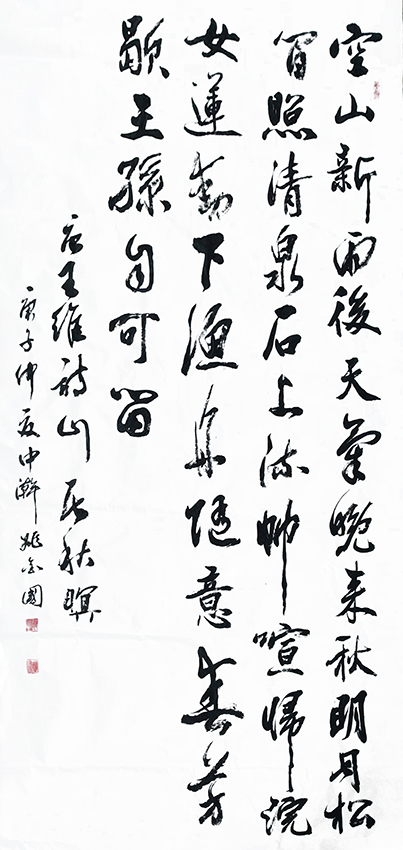 空山新雨後天氣晚来秋明月松
間照清泉石上流竹喧歸浣
女蓮動下漁舟随意春芳
歇王孫自可留
唐王維詩山居秋暝
庚子仲夏中澣姚金國